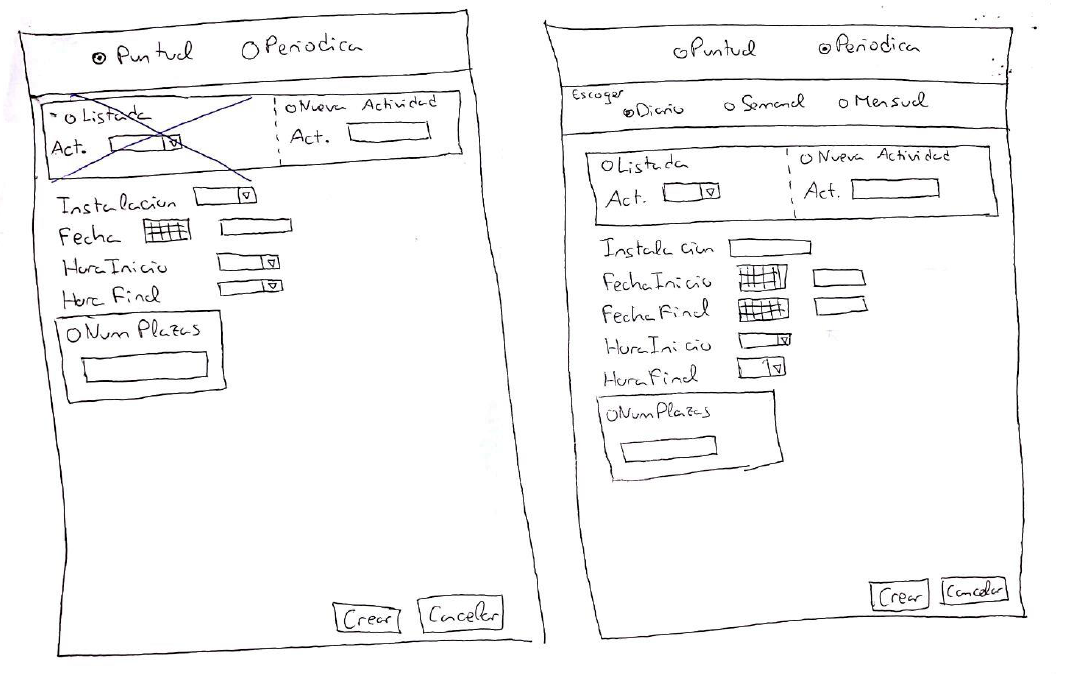 Puntual Periodica
Listada
Nueva Actividad
Act.
Act.
Instalacion
Fecha
Hora Inicio
Hora Final
Num Plazas
Crear
Cancelar
Puntual Periodica
Escoger
Diario Semanal Mensual
Listada
Nueva Actividad
Act.
Act.
Instalacion
Fecha Inicio
Fecha Final
Hora Inicio
Hora Final
Num Plazas
Crear
Cancelar